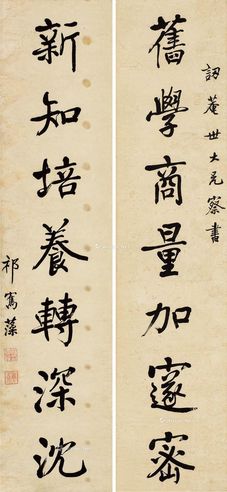 訒菴世大兄察書
舊學商量加邃密
新知培養轉深沈
祁寯藻